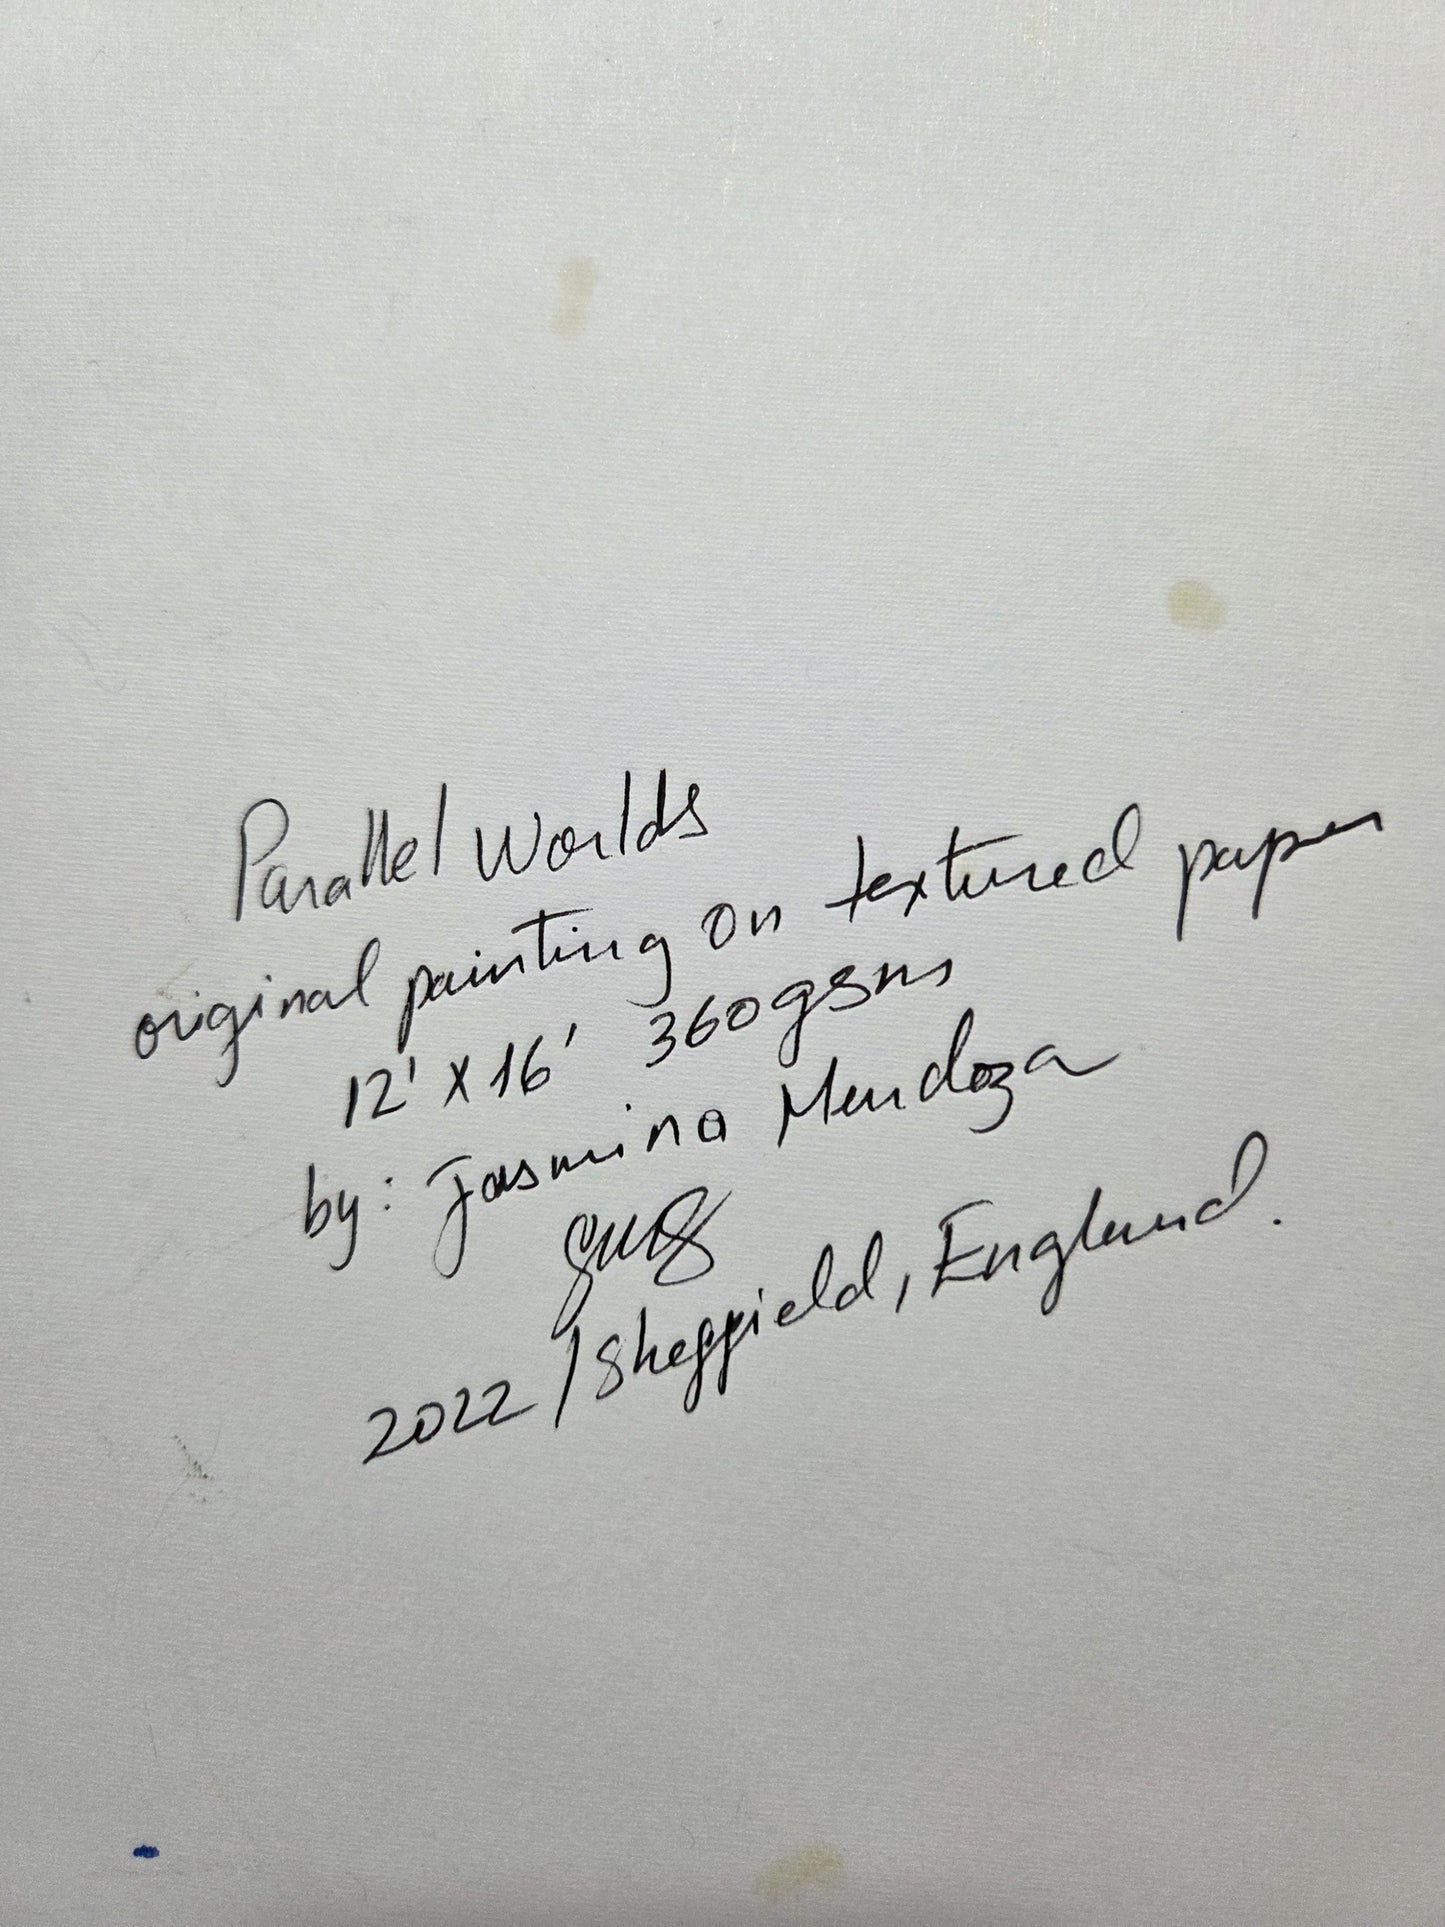 Parallel Worlds
original painting on textured paper
12' x 16' 360gsm
by: Jasmina Mendoza
2022 / Sheffield, England.